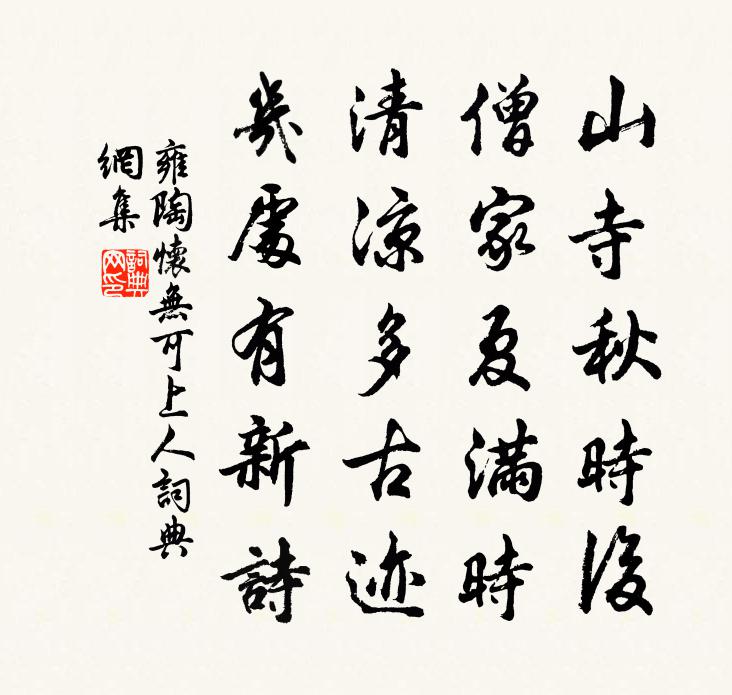 山寺秋時後
僧家夏滿時
清涼多古迹
幾處有新詩
雍陶懷無可上人詞典
網集
詞典
网印